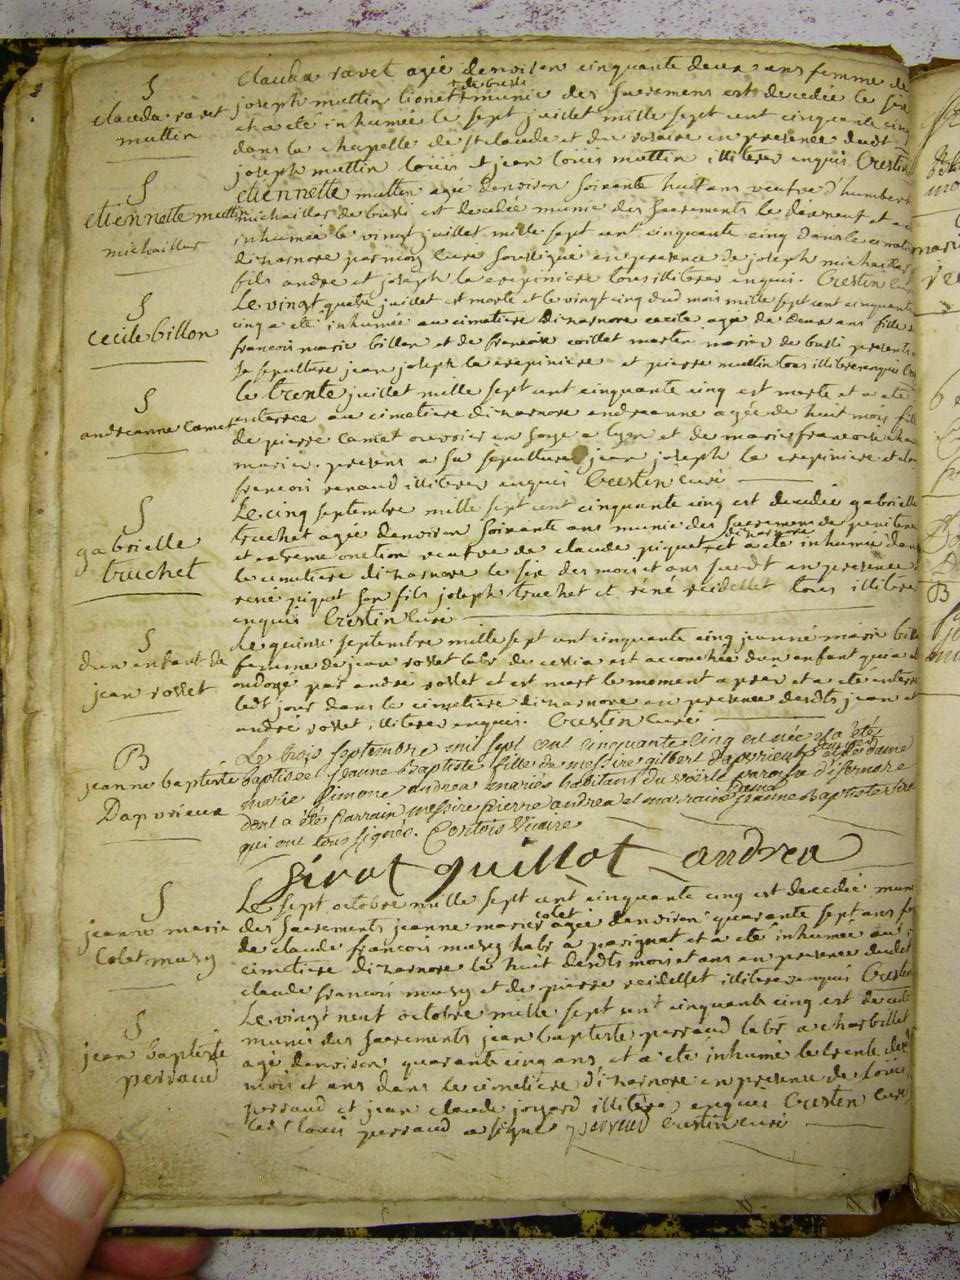 S
clauda ravet
muttin
clauda ravet agée denviron cinquante deux ans femme de
joseph muttin lionet + de bussi munie des sacremens est decedée le six
et a eté inhumée le sept juillet mille sept cent cinquante cinq
dans la chapelle de st claude et du rosaire en presence dudt
joseph muttin louis et jean louis muttin illiteres enquis Crestin
S
etiennette muttin
michaillas
etiennette muttin agée denviron soixante huit ans veufve d'humbert
michaillas de bussi est decedée munie des sacrements le dixneuf et a eté
inhumée le vingt juillet mille sept cent cinquante cinq dans le cimetiere
dizarnore par moy curé soussigné en presence de joseph michaillas
fils andré et joseph la crepiniere tous illiteres enquis. Crestin curé
S
cecile billon
Le vingt quatre juillet est morte et le vingt cinq dud mois mille sept cent cinquante
cinq a eté inhumée au cimetiere dizarnore cecile agée de deux ans fille de
francois marie billon et de francoise coillet martin de bussi presents
sa sepulture jean joseph la crepiniere et pierre muttin tous illiteres enquis
S
andréanne camet
le trente juillet mille sept cent cinquante cinq est morte et a eté
enterrée au cimetiere dizarnore andréanne agée de huit mois fille
de pierre camet ouvrier en soye a lyon et de marie francoise
mariés. presens a sa sepulture jean joseph la crepiniere et
francois renaud illiteres enquis Crestin curé
S
gabrielle
truchet
Le cinq septembre mille sept cent cinquante cinq est decedée gabrielle
truchet agée denviron soixante ans munie des sacremens de penitence
et extreme onction veufve de claude piquet dizarnore et a eté inhumée dans
le cimetiere dizarnore le six des mois et ans susdt en presence de
rené piquet son fils joseph truchet et réné reidellet tous illiteres
enquis Crestin curé
S
d'un enfant de
jean rosset
Le quinze septembre mille sept cent cinquante cinq jeanne marie
femme de jean rosset labr de cessia est accouchée d'un enfant qui a eté
ondoyé par andré rosset et est mort le moment après et a eté enterré
ledt jour dans le cimetiere dizarnore en presence desdts jean et
andré rosset illiteres enquis. Crestin curé
B
jeanne baptiste
Dapvrieux
Le trois septembre mil sept cent cinquante cinq est née et a étée
baptisée jeanne Baptiste fille de messire gilbert Dapvrieux et de dame
marie Simone andrea mariés habitans du voërle paroisse d'isernore
dont a été parrain messire pierre andrea et marraine dame jeanne Baptiste
qui ont tous signés. Cortois Vicaire
Sirot guillot andrea
S
jeanne marie
Colet musy
Le sept octobre mille sept cent cinquante cinq est decedée munie
des sacrements jeanne marie colet agée denviron quarante sept ans
de claude francois musy habt a perignat et a eté inhumée au
cimetiere dizarnore le huit desdts mois et ans en presence dudet
claude francois musy et de pierre reidellet illiteres enquis Crestin
S
jean baptiste
perraud
Le vingt neuf octobre mille sept cent cinquante cinq est decedé
muni des sacrements jean baptiste perraud labr a charbillet
agé denviron quarante cinq ans et a eté inhumé le trente desd
mois et ans dans le cimetiere dizarnore en presence de louis
perraud et jean claude jossard illiteres enquis Crestin curé
ledt louis perraud a signé perraud Crestin curé